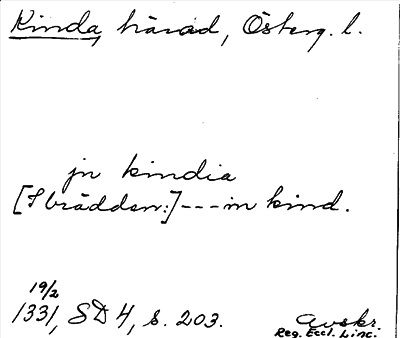 Kinda, härad, Österg. l.
jn kindia
[I brädden:]---in kind.
19/2
1331, SD 4, s. 203.
Avskr.
Reg. Eccl. Linc.